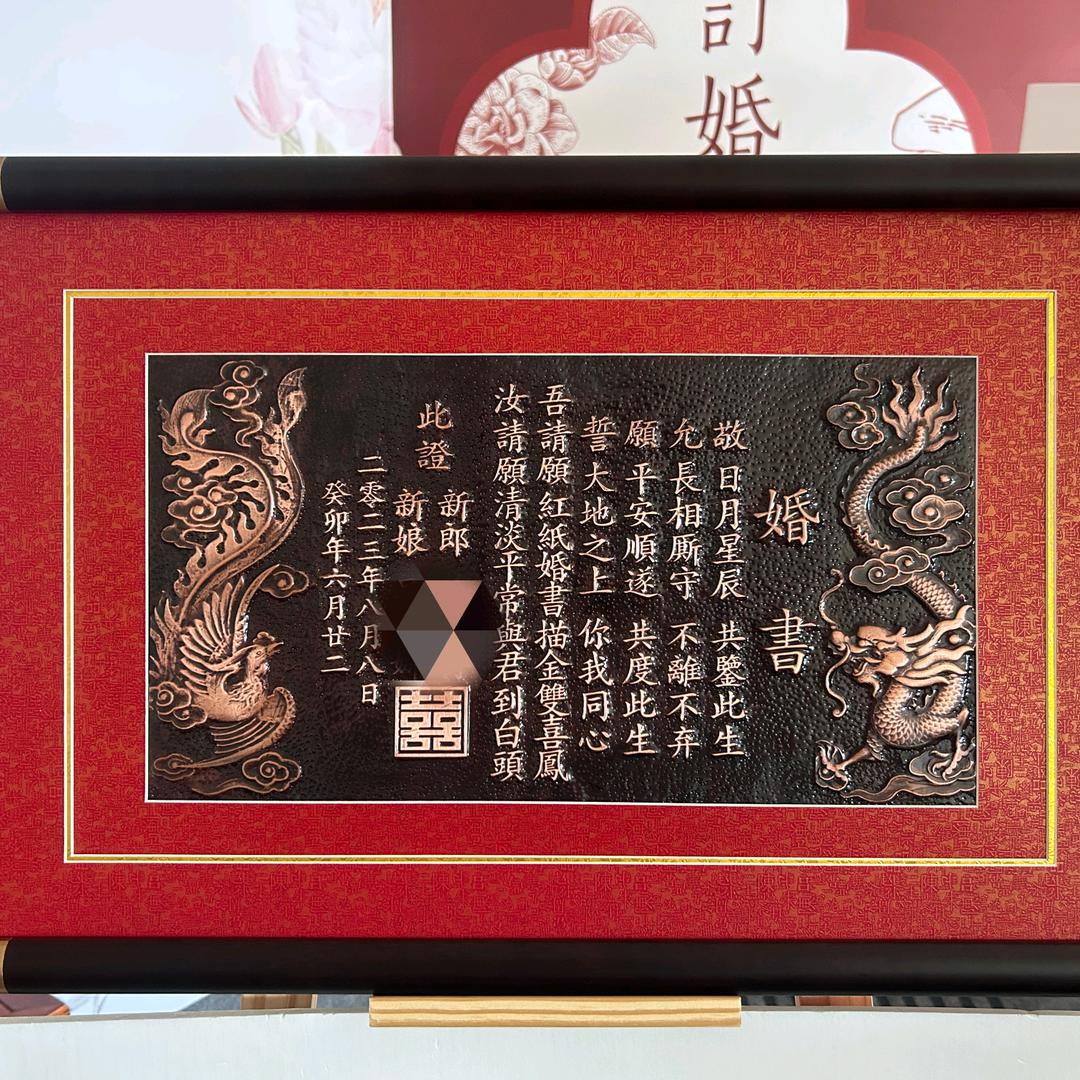 訂婚
婚書
敬日月星辰 共鑒此生
允長相厮守 不離不弃
願平安順遂 共度此生
誓大地之上 你我同心
吾請願紅紙婚書描金雙喜鳳
汝請願清淡平常與君到白頭
此證
新郎
新娘
二零二三年八月八日
癸卯年六月廿二
囍